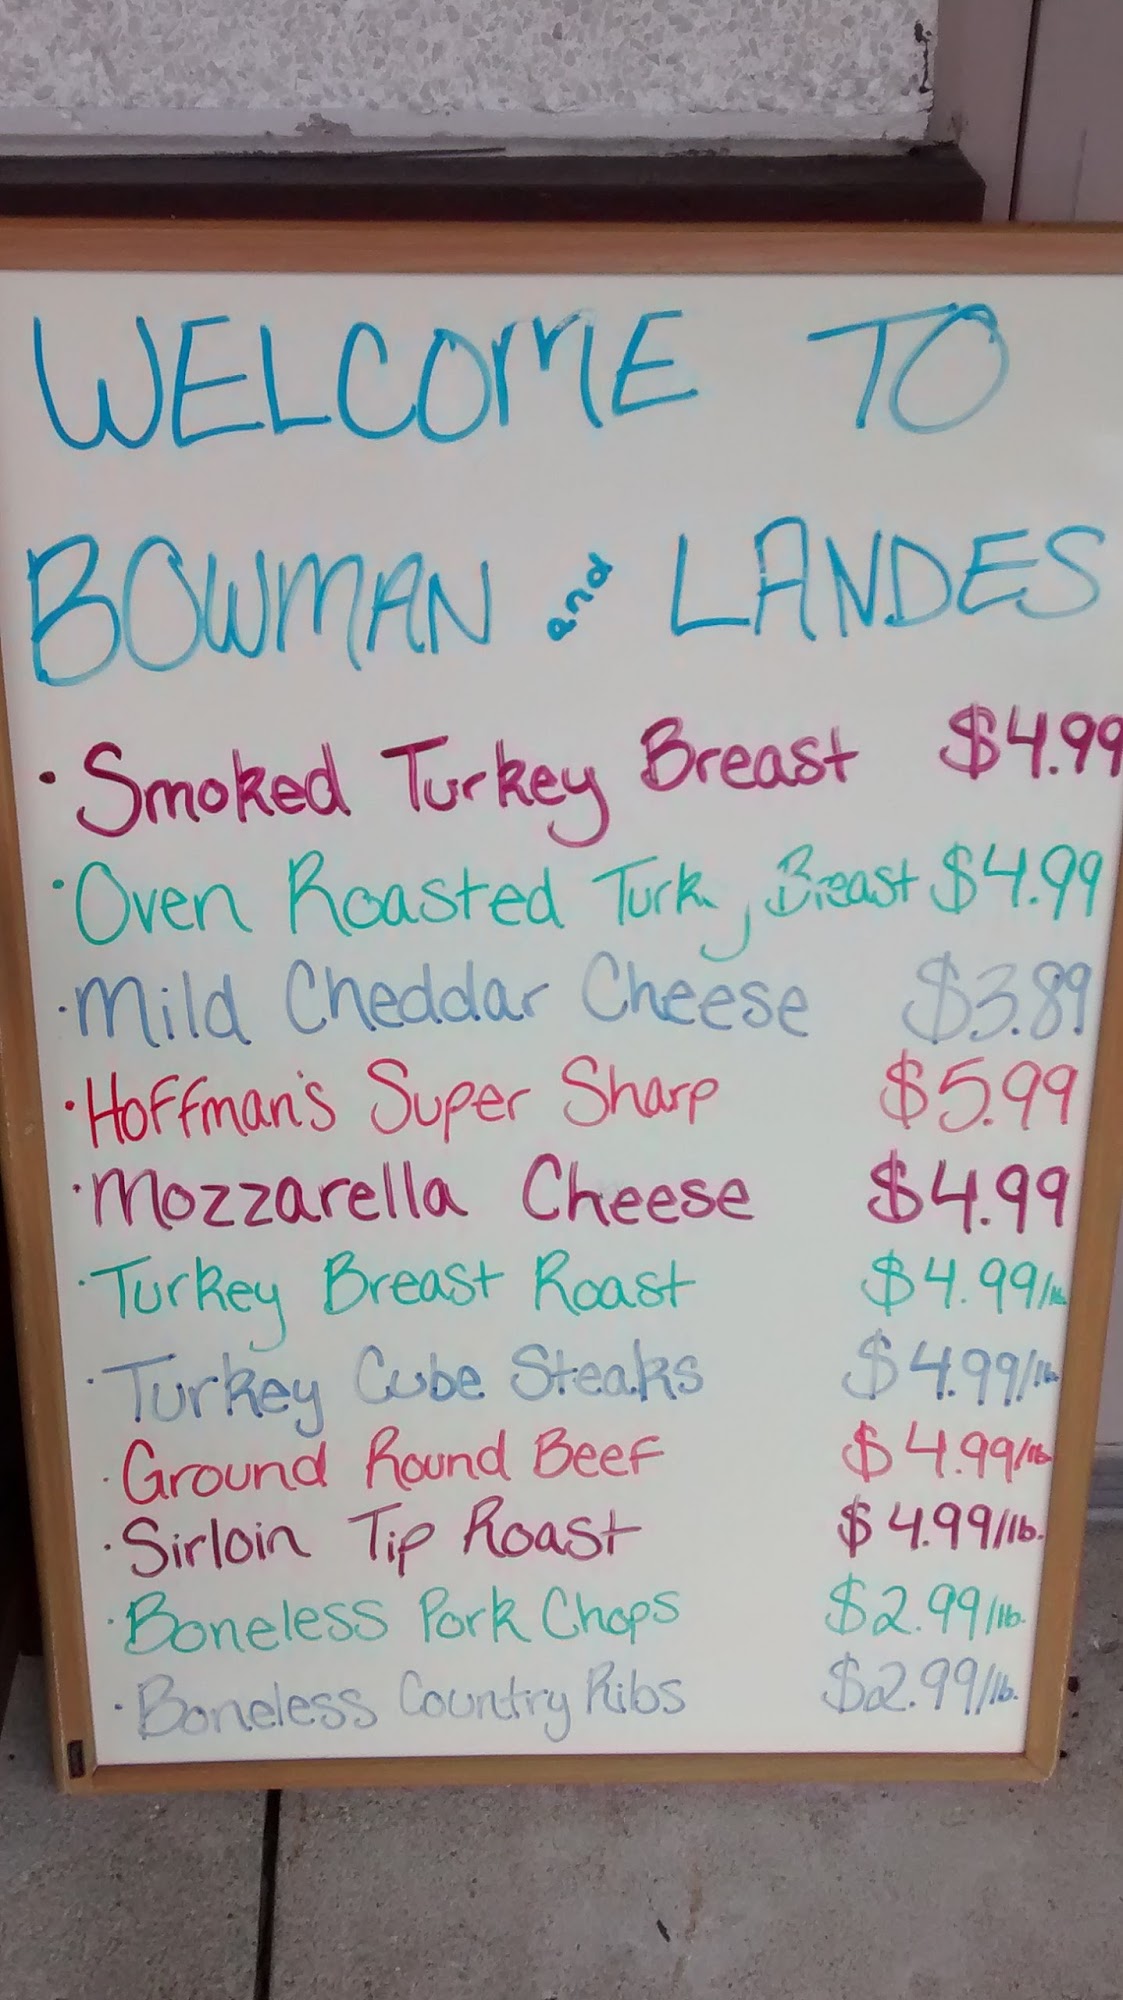 WELCOME TO
BOWMAN and LANDES
· Smoked Turkey Breast $4.99
· Oven Roasted Turkey Breast $4.99
· Mild Cheddar Cheese $3.89
· Hoffman's Super Sharp $5.99
· Mozzarella Cheese $4.99
· Turkey Breast Roast $4.99/lb.
· Turkey Cube Steaks $4.99/lb.
· Ground Round Beef $4.99/lb.
· Sirloin Tip Roast $4.99/lb.
· Boneless Pork Chops $2.99/lb.
· Boneless Country Ribs $2.99/lb.